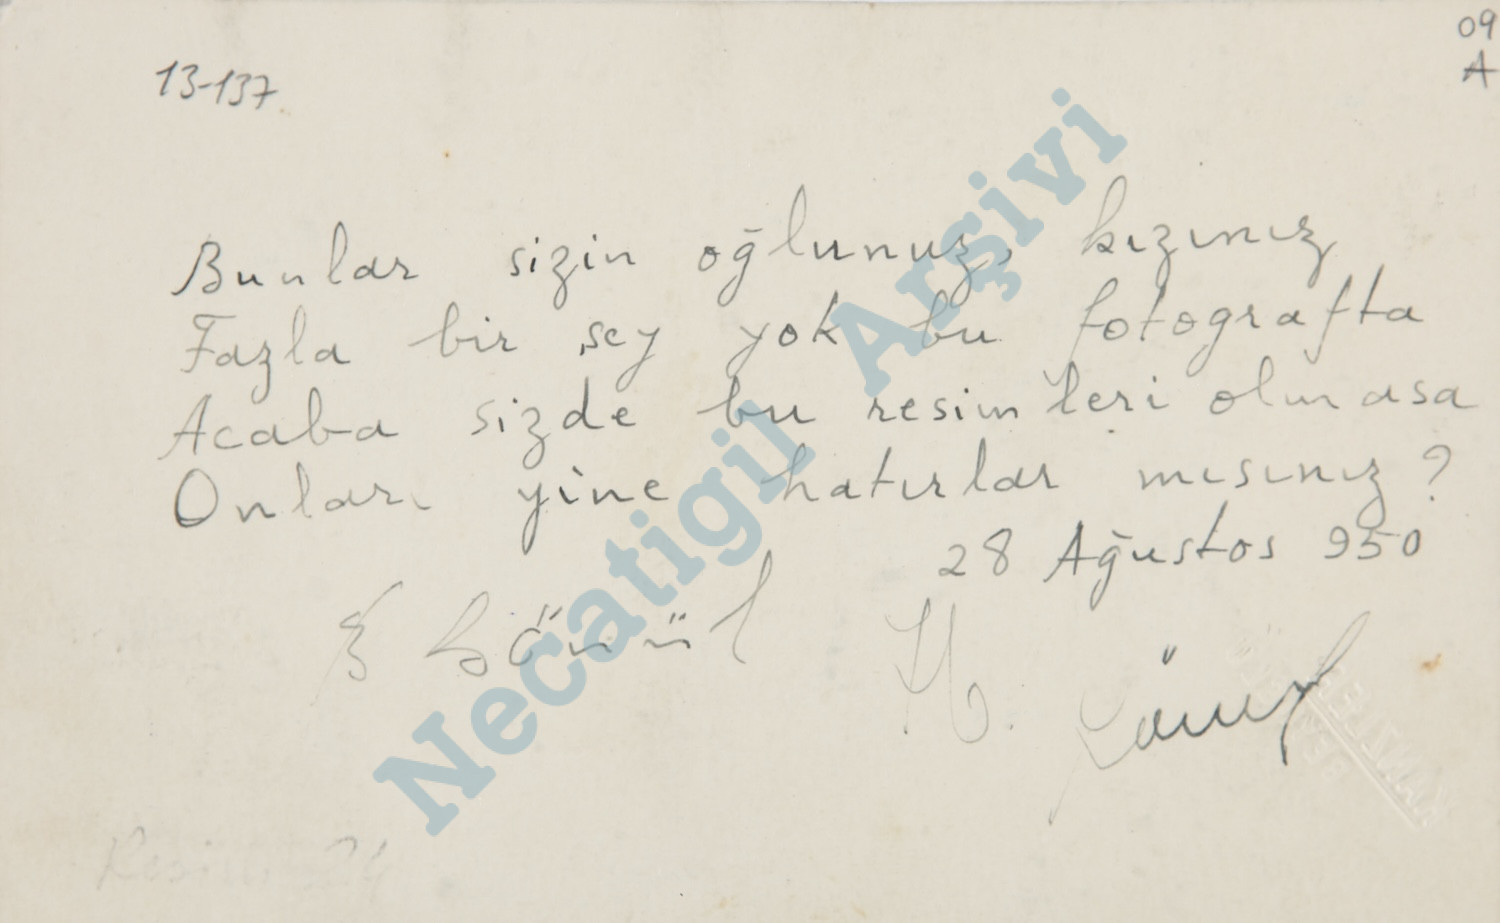 13-137
09
A
Bunlar sizin oğlunuz, kızınız
Fazla bir şey yok bu fotografta
Acaba sizde bu resimleri olmasa
Onları yine hatırlar mısınız?
28 Ağustos 950
Gönül
H.
Necatigil Arşivi